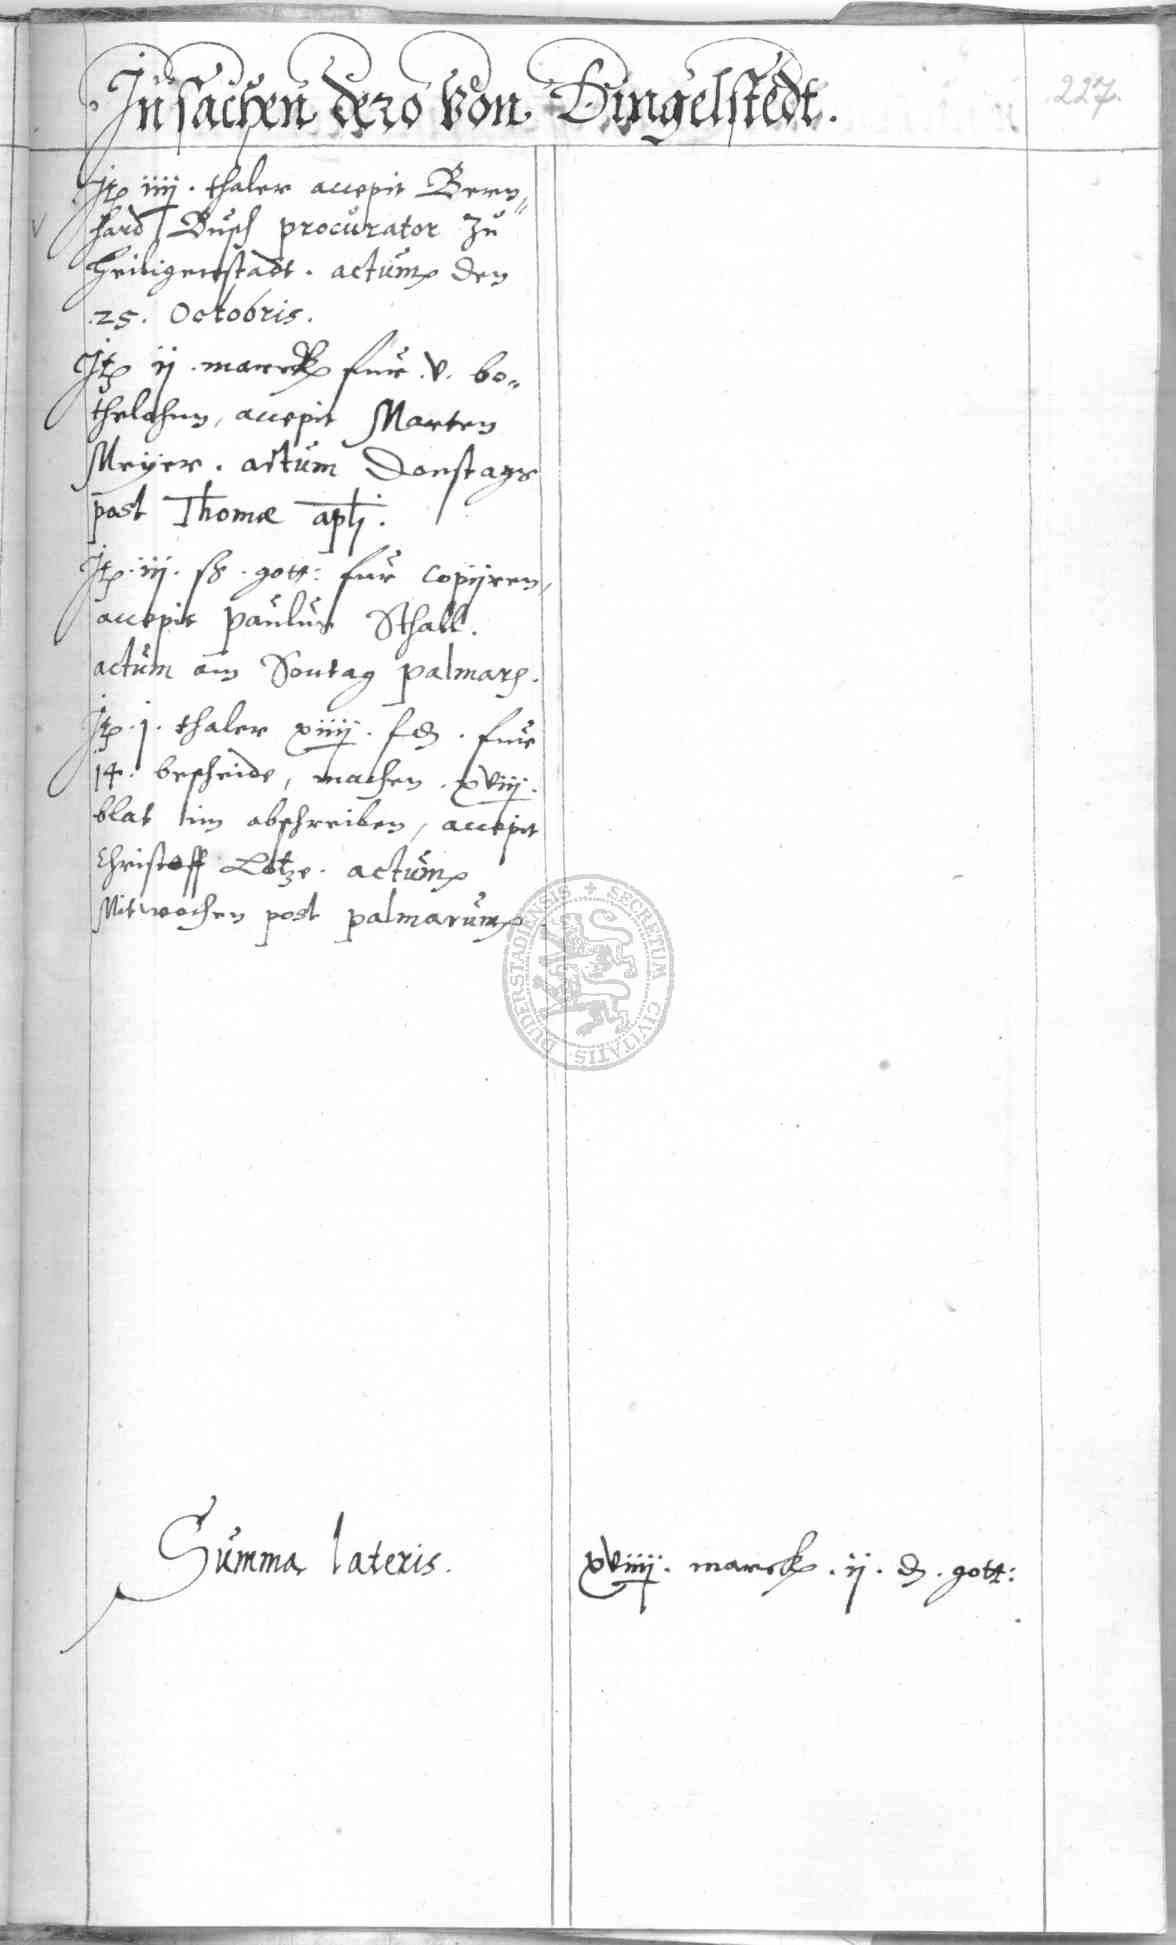 In sachen dero von Dingelstedt.
227.
Itz iiij. thaler accepit Bern„
hard Busch procurator zu
Heiligenstadt. actum den
.25. Octobris.
Itz ij. marck fur .v. bo„
thelohnn, accepit Marten
Meyer. actum Donstags
post Thomæ apli.
Itz .iij. ß. gott: fur copijren,
accepit Paulus Sthall.
actum am Sontag palmar.
Itz .j. thaler xiiij. ß. fur
14. bescheide, machen .xviij.
blat im abschreiben, accepit
Christoff Lotze. actum
Mitwochen post palmarum
Summa lateris.
xviiij. marck .ij. ₰. gott:
SECRETUM CIVITATIS DUDERSTADIENSIS